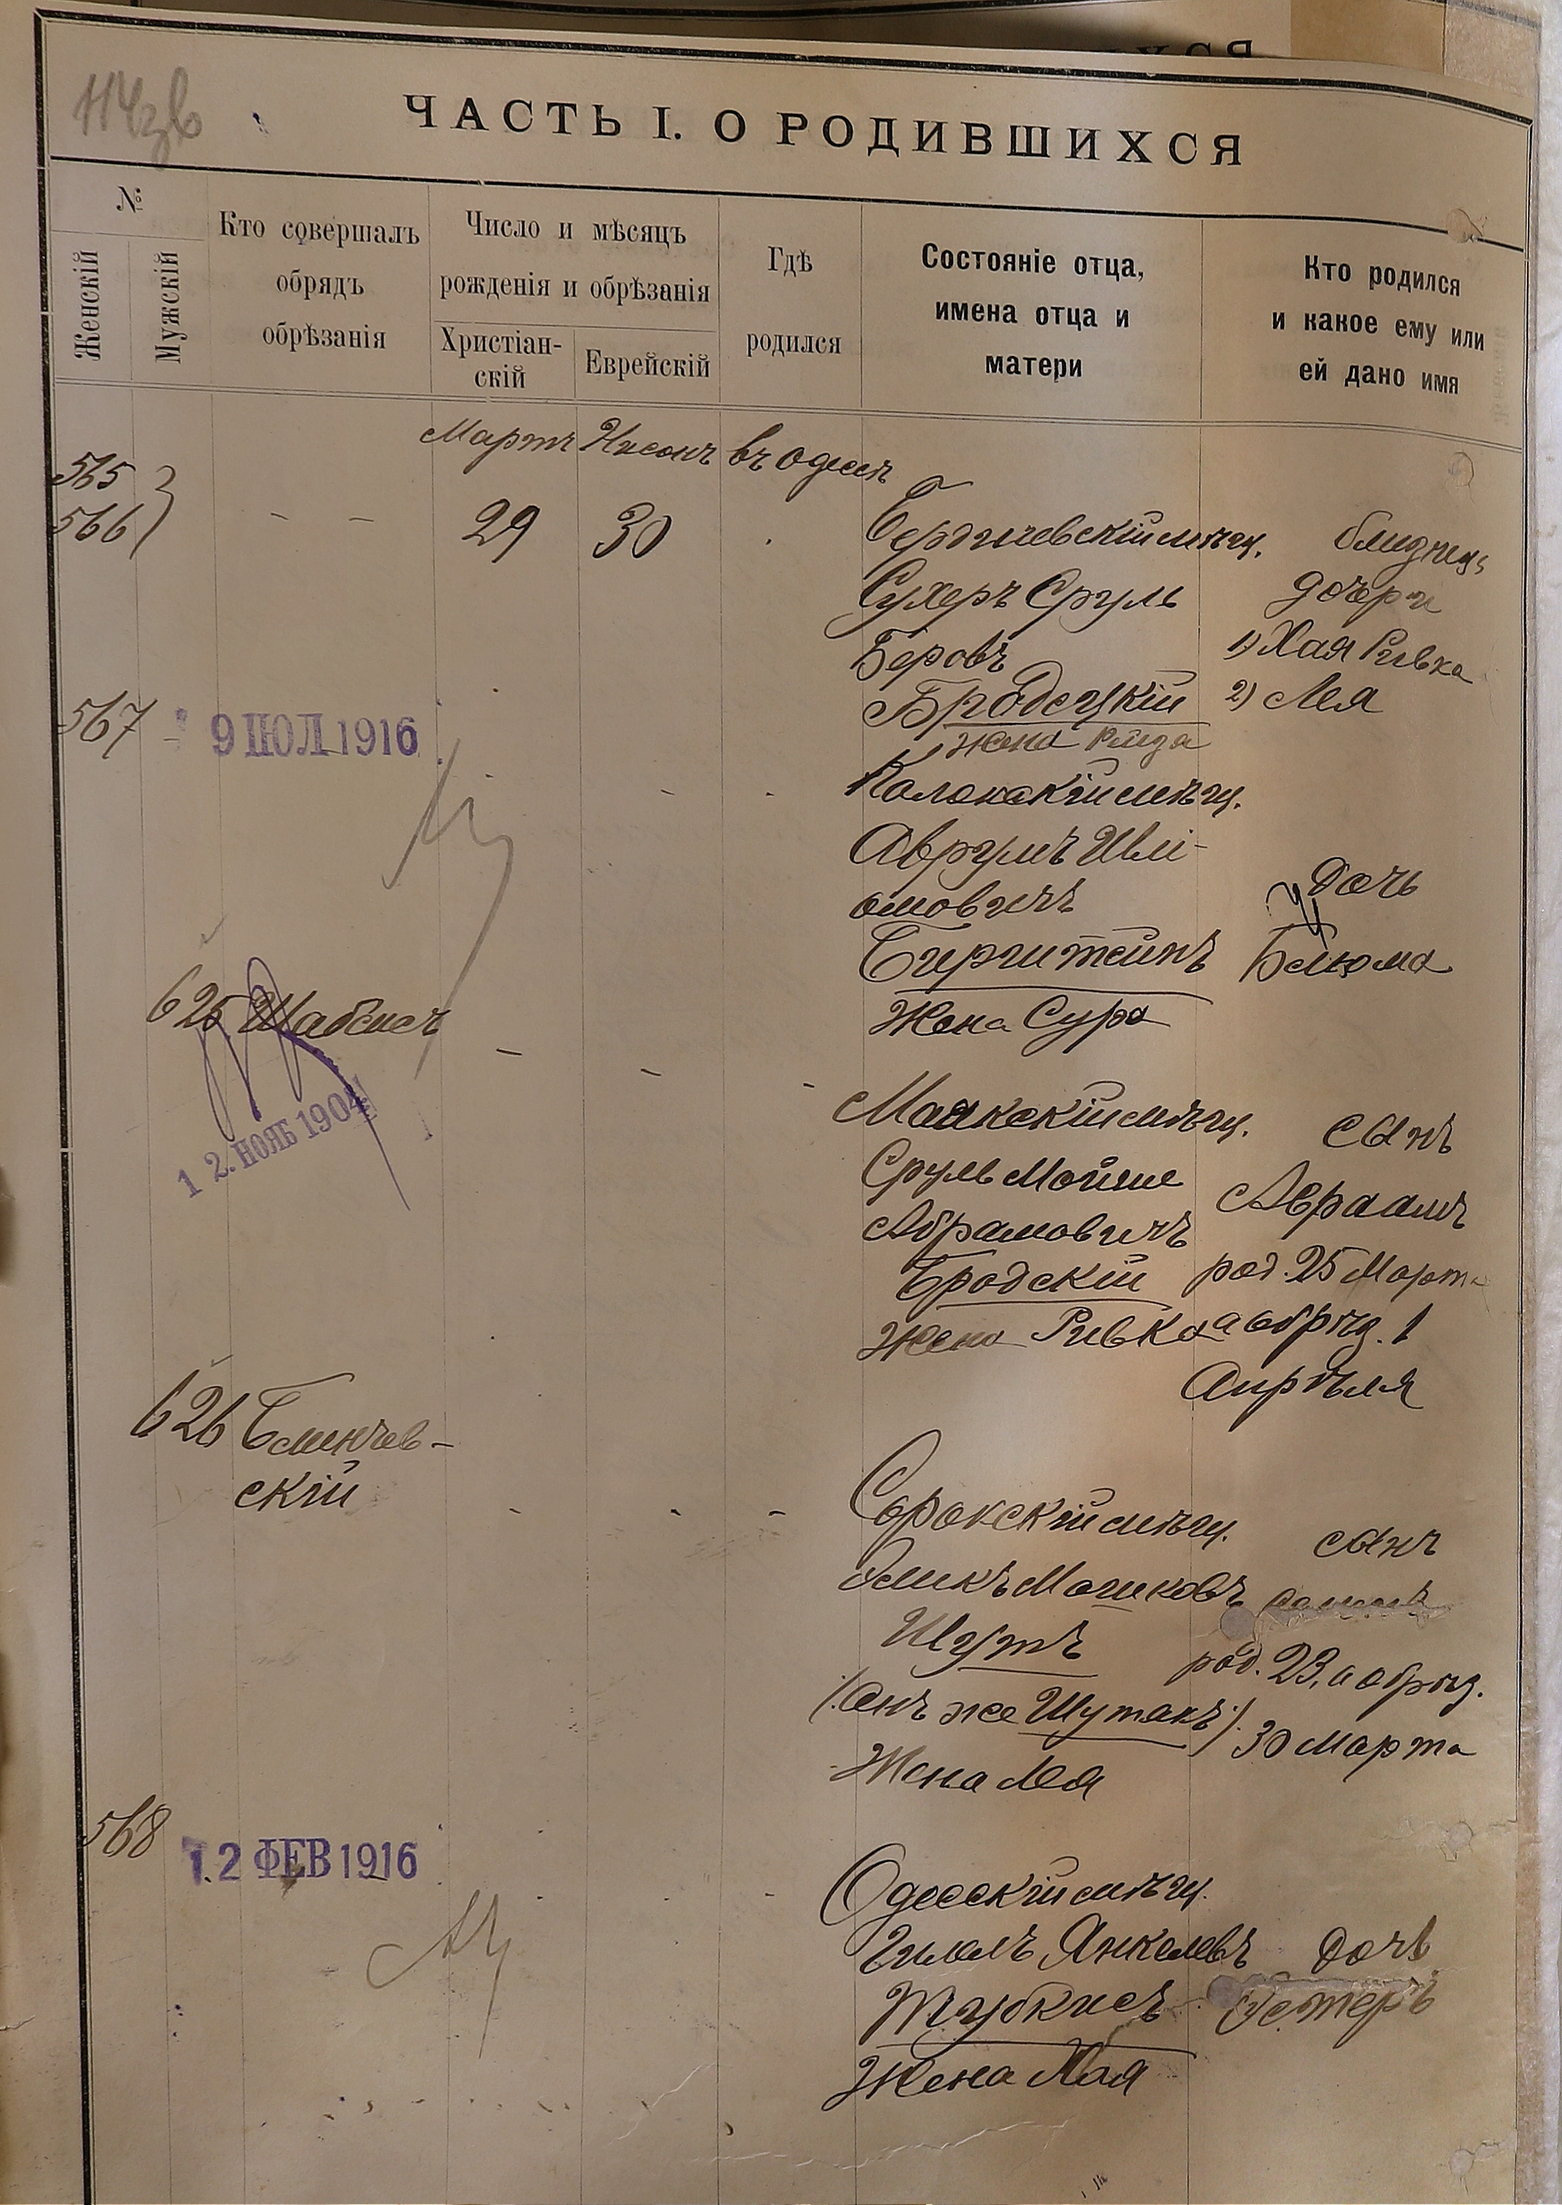 ЧАСТЬ I. О РОДИВШИХСЯ
№
Женскій
Мужскій
Кто совершалъ
обрядъ
обрѣзанія
Число и мѣсяцъ
рожденія и обрѣзанія
Христіан-
скій
Еврейскій
Гдѣ
родился
Состояніе отца,
имена отца и
матери
Кто родился
и какое ему или
ей дано имя
Мартъ Нисонъ въ Одессѣ
565
566
29 30
Бердичевскій мѣщ.
Сухеръ Сруль
Беровъ
Бродецкій
жена Рейза
близнецы
дочери
1) Хая Ривка
2) Лея
567
9 ІЮЛ 1916
мѣщ.
Аврумъ Шлі-
омовичъ
Бирштейнъ
Жена Сура
дочь
Бейла
625 Шабсисъ
12. НОЯБ 1904
Маякскій мѣщ.
Сруль Мойше
Абрамовичъ
Бродскій
жена Ривка
сынъ
Авраамъ
род. 25 Марта
а обрѣз. 1
Апрѣля
626 Блинчев-
скій
Сорокскій мѣщ.
Мошковъ
Шутъ
(онъ же Шутакъ)
Жена Лея
сынъ
род. 23, а обрѣз.
30 Марта
568
12 ФЕВ 1916
Одесскій мѣщ.
Янкелевъ
Тубкисъ
Жена Хая
дочь
Эстеръ